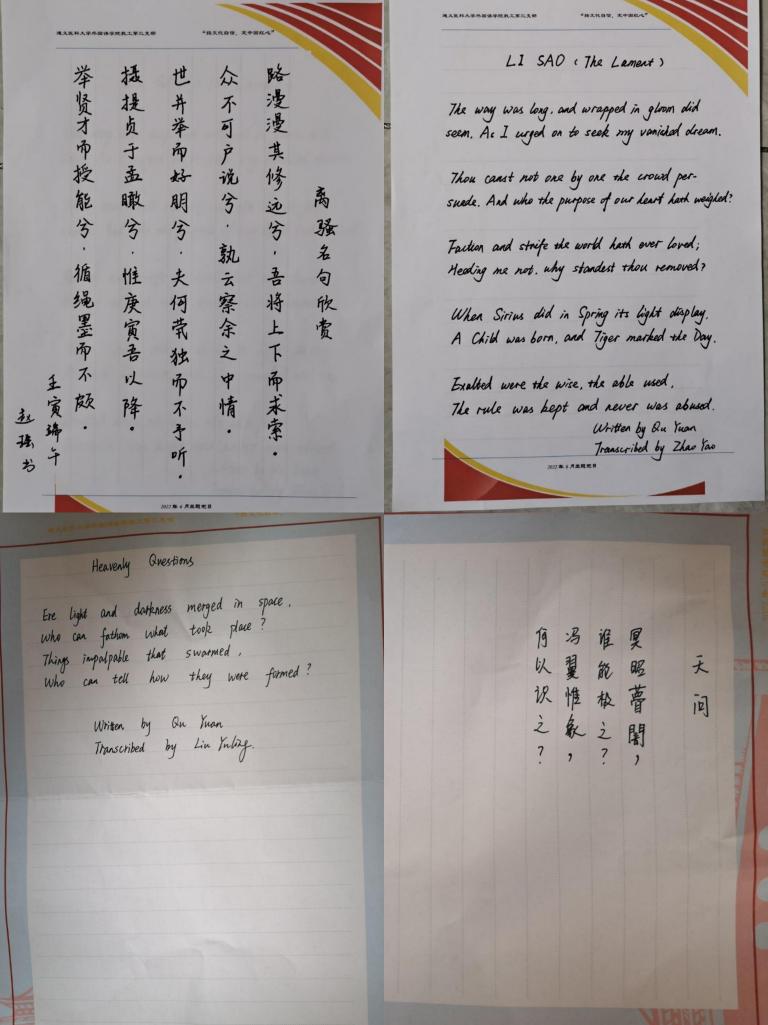 遵义医科大学外国语学院教工第二支部
离骚名句欣赏
路漫漫其修远兮，吾将上下而求索。
众不可户说兮，孰云察余之中情。
世并举而好朋兮，夫何茕独而不予听。
摄提贞于孟陬兮，惟庚寅吾以降。
举贤才而授能兮，循绳墨而不颇。
壬寅端午
赵瑶书
2022 年 6 月主题党日
LI SAO (The Lament)
The way was long, and wrapped in gloom did
seem, As I urged on to seek my vanished dream.
Thou canst not one by one the crowd per-
suade. And who the purpose of our heart hath weighed?
Faction and strife the world hath ever loved;
Heading me not, why standest thou removed?
When Sirius did in Spring its light display,
A Child was born, and Tiger marked the Day.
Exalted were the wise, the able used,
The rule was kept and never was abused.
Written by Qu Yuan
Transcribed by Zhao Yao
2022 年 6 月主题党日
Heavenly Questions
Ere light and darkness merged in space,
Who can fathom what took place?
Things impalpable that swarmed,
Who can tell how they were formed?
Written by Qu Yuan
Transcribed by Liu Yuling.
天问
冥昭瞢闇，
谁能极之？
冯翼惟象，
何以识之？